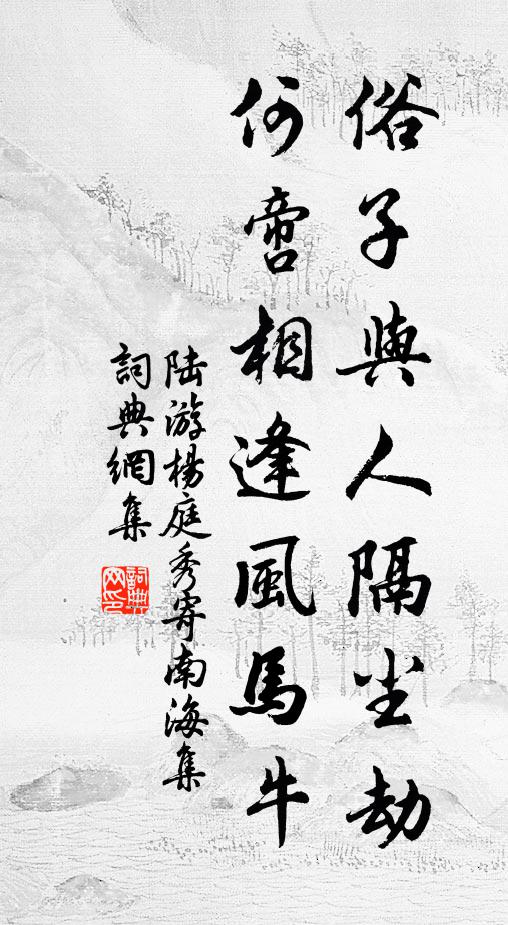 俗子與人隔尘劫
何啻相逢風馬牛
陆游楊庭秀寄南海集
詞典網集
詞典网印